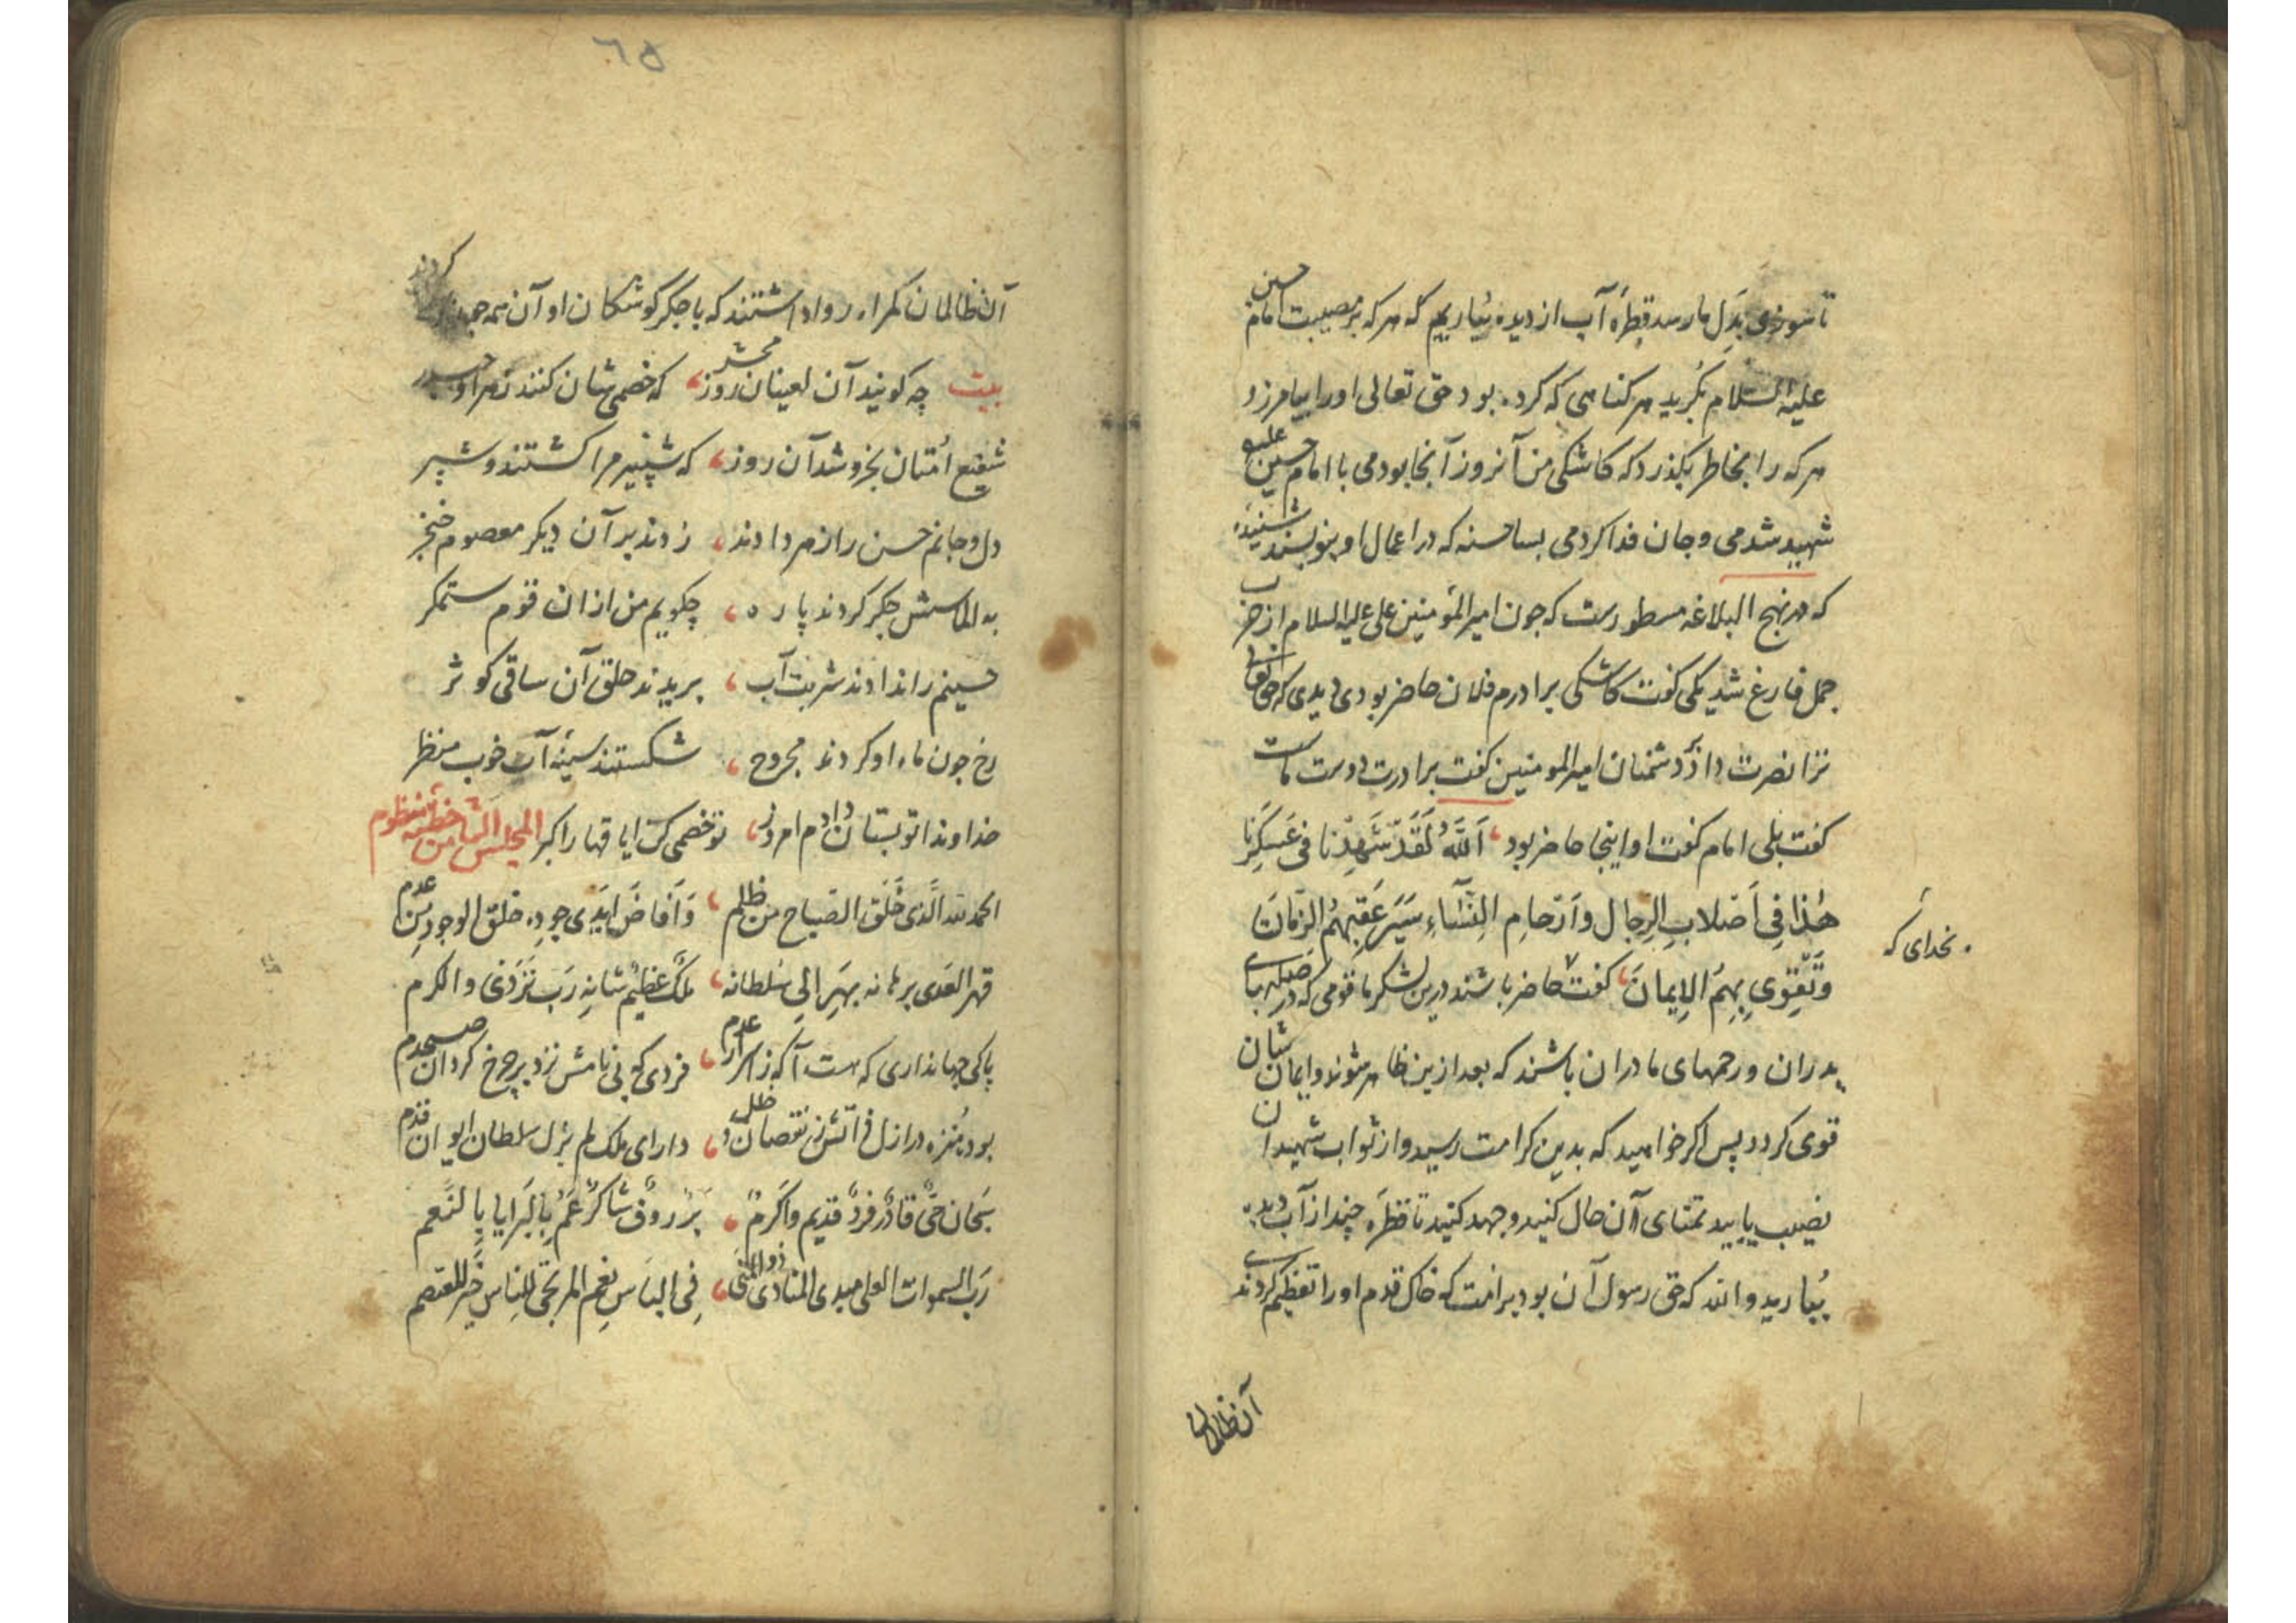 تا سوزی بدل ما رسد قطرهٔ آب از دیده بباریم که هر که بر مصیبت امام حسین
علیه السلام بگرید هر کناهی که کرده بود حق تعالی اورا بیامرزد و
هر که را بخاطر بکذرد که کاشکی من آنروز آنجا بودمی با امام حسین علیه
شهید شدمی و جان فدا کردمی بسا حسنه که در اعمال او بنویسند شنیدهٔ
که در نهج البلاغه مسطورست که چون امیر المؤمنین علی علیه السلام از حرب
جمل فارغ شد یکی کفت کاشکی برادرم فلان حاضر بودی و دیدی که حق تعالی
ترا نصرت داد بر دشمنان امیر المومنین کفت برادرت دوست ماست
کفت بلی امام کفت او اینجا حاضر بود اَللّٰهُ لَقَدْ شَهِدْنا فی عَسکَرِنا
هٰذا فِی اَصْلابِ الرِجالِ وَاَرْحامِ النِّسَاءِ سَیَرْعَفِبِهِمُ الزَمانَ
بخدای که
وَتَقْوِی بِهِمُ الاِیمانَ کفت حاضر باشند درین لشکر ما قومی که در صلبهای
پدران و رحمهای مادران باشند که بعد ازین ظاهر شوند و ایمان شان
قوی کردد پس اکر خواهید که بدین کرامت رسید و از ثواب شهیدان
نصیب یابید تمنای آن حال کنید و جهد کنید تا قطرهٔ چند از آب دیده
بباریدو الله که حق رسول آن بود بر امت که خاک قدم اورا تعظیم کردندی
آن ظالمان
٦٥
آن ظالمان کمراه روا داشتند که با جکر کوشکان او آن همه جفا کردند
بیت چه کویند آن لعینان روز محشر که خصمی شان کند زهرا و حیدر
شفیع امتان بخروشد آن روز که شبیرم را کشتند و شبر
دل و جانم حسن را زهر دادند زدند بر آن دیکر معصوم خنجر
به الماسش جکر کردند پاره چکویم من ازان قوم ستمکر
حسینم را ندادند شربت آب بریدند حلق آن ساقی کوثر
رخ چون ماه او کردند مجروح شکستند سینهٔ آن خوب منظر
خداوندا تو بستان دادم امروز تو خصمی کن ایا قهار اکبر المجلس الثامن خطبه منظوم
الحمد لله الَّذی خَلَقَ الصباح من ظلم وَاَفاضَ اَیدی جوده خلق الوجود من عدم
قهر العدی برهانه بهر الی سلطانه ملکٌ عظیمٌ شانهِ رب والکرم
پاکی جهانداری که هست آکه ز اسرار عدم فردی که بی نامش نزد بر چرخ کردان صبحدم
بود منزه در ازل ذاتش ز نقصان و خلل دارای ملک لم یزل سلطان ایوان قدم
سبحان حیٌّ قادرٌ فردٌ قدیم واکرمٌ برٌّ رؤفٌ شاکرٌ عَمَّ البرایا بالنعم
رب السموات العلی مبدی المنادی ذو المنی فِی الباس نعم المرتجی للناس خیر المعتصم